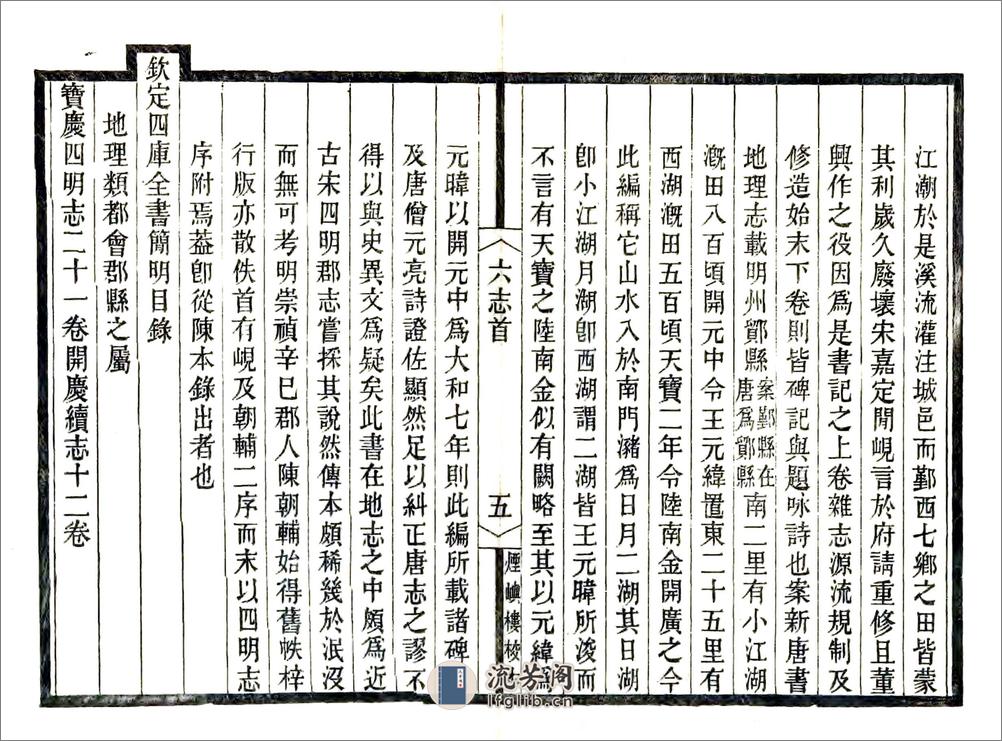 江潮於是溪流灌注城邑而鄞西七鄉之田皆蒙
其利歲久廢壞宋嘉定間峴言於府請重修且董
興作之役因爲是書記之上卷雜志源流規制及
修造始末下卷則皆碑記與題咏詩也案新唐書
地理志載明州鄮縣案鄞縣在唐爲鄮縣南二里有小江湖
溉田八百頃開元中令王元緯置東二十五里有
西湖溉田五百頃天寶二年令陸南金開廣之今
此編稱它山水入於南門瀦爲日月二湖其日湖
卽小江湖月湖卽西湖謂二湖皆王元暐所浚而
不言有天寶之陸南金似有闕略至其以元緯爲
六志首
五
煙嶼樓校
元暐以開元中爲大和七年則此編所載諸碑
及唐僧元亮詩證佐顯然足以糾正唐志之謬不
得以與史異文爲疑矣此書在地志之中頗爲近
古宋四明郡志嘗採其說然傳本頗稀幾於泯沒
而無可考明崇禎辛巳郡人陳朝輔始得舊帙梓
行版亦散佚首有峴及朝輔二序而末以四明志
序附焉葢卽從陳本錄出者也
欽定四庫全書簡明目錄
地理類都會郡縣之屬
寶慶四明志二十一卷開慶續志十二卷
流芳阁
lfglib.cn